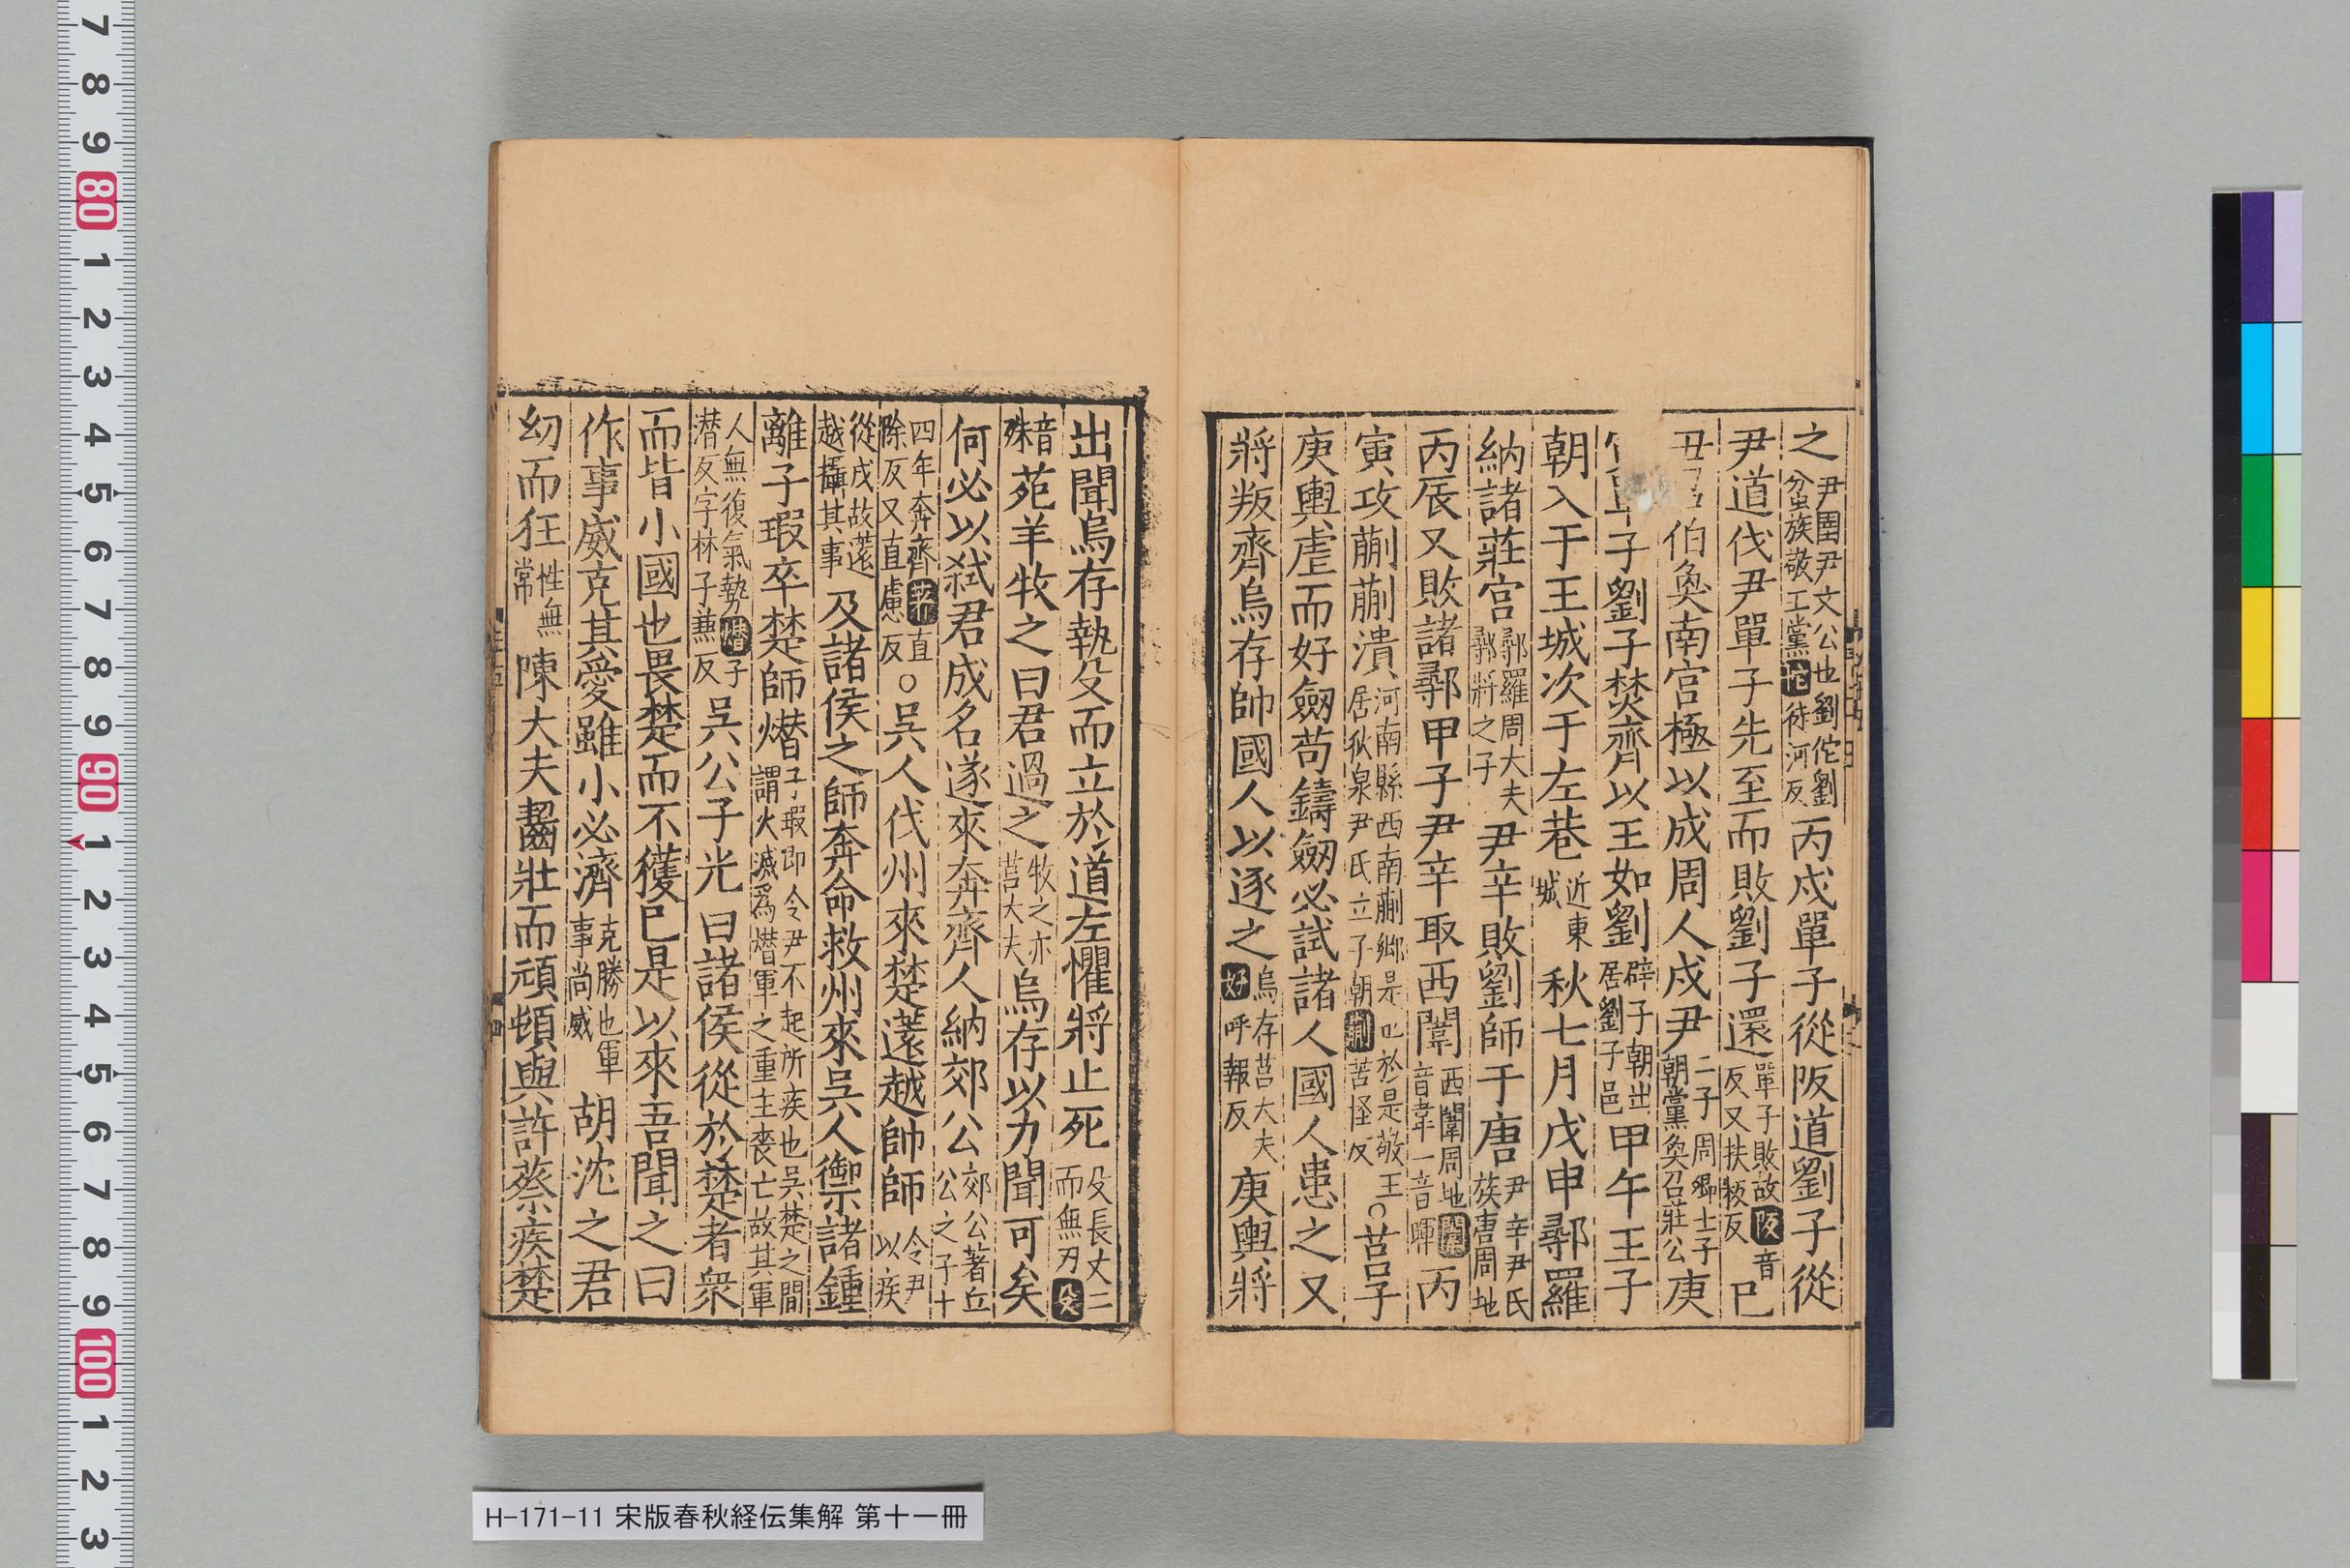 之尹圉尹文公也劉佗劉蚠族敬王黨佗徒河反丙戌單子從阪道劉子從
尹道伐尹單子先至而敗劉子還單子敗故阪音反又扶板反己
丑伯奐南宮極以成周人戍尹二子周卿士子朝黨奐召莊公庚
子劉子樊齊以王如劉辟子朝出居劉子邑甲午王子
朝入于王城次于左巷近東城秋七月戊申鄩羅
納諸莊宮鄩羅周大夫鄩將之子尹辛敗劉師于唐尹辛尹氏族唐周地
丙辰又敗諸鄩甲子尹辛取西闈西闈周地闈音韋一音暉丙
寅攻蒯蒯潰河南縣西南蒯鄉是也於是敬王居狄泉尹氏立子朝蒯苦怪反○莒子
庚輿虐而好劒苟鑄劒必試諸人國人患之又
將叛齊烏存帥國人以逐之烏存莒大夫好呼報反庚輿將
出聞烏存執殳而立於道左懼將止死殳長丈二而無刃殳
音殊苑羊牧之曰君過之牧之亦莒大夫烏存以力聞可矣
何必以弒君成名遂來奔齊人納郊公郊公著丘公之子十
四年奔齊著直除反又直慮反○吳人伐州來楚薳越帥師令尹以疾
從戎故薳越攝其事及諸侯之師奔命救州來吳人禦諸鍾
離子瑕卒楚師熸子瑕即令尹不起所疾也吳楚之間謂火滅爲熸軍之重主喪亡故其軍
人無復氣勢熸子潛反字林子兼反吳公子光曰諸侯從於楚者衆
而皆小國也畏楚而不獲已是以來吾聞之曰
作事威克其愛雖小必濟克勝也軍事尚威胡沈之君
幼而狂性無常陳大夫齧壯而頑頓與許蔡疾楚
H-171-11 宋版春秋経伝集解 第十一冊